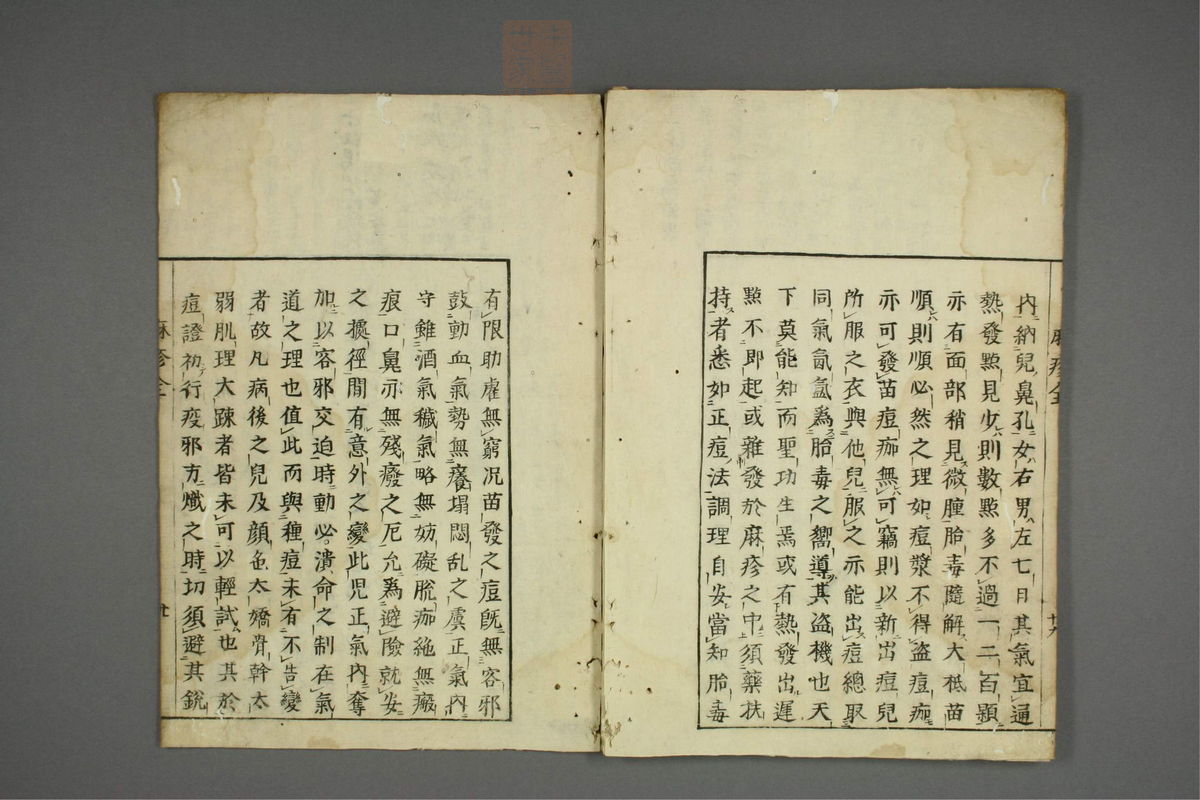 内納兒鼻孔女右男左七日其氣宜通
熱發㸃見少則數㸃多不過一二百顆
亦有面部稍見微腫胎毒隨解大柢苗
順則順必然之理如痘漿不得盜痘痂
亦可發苗痘痂無可竊則以新出痘兒
所服之衣與他兒服之亦能出痘總取
同氣氤氳爲胎毒之嚮導其盜機也天
下莫能知而聖功生焉或有熱發出遲
㸃不即起或雜發於麻疹之中須藥扶
持者悉如正痘法調理自安當知胎毒
有限助虐無窮况苗發之痘既無客邪
鼓動血氣勢無癢塌悶乱之虞正氣内
守雖酒氣穢氣略無妨礙脫痂絶無癜
痕口鼻亦無殘癈之厄允爲避險就安
之擾徑間有意外之變此児正氣内奪
加以客邪交迫時動必潰命之制在氣
道之理也値此而與種痘未有不告變
者故凡病後之兒及顔色太嬌骨幹太
弱肌理大踈者皆未可以輕試也其於
痘證初行疫邪方熾之時切須避其銳
麻疹全
廿